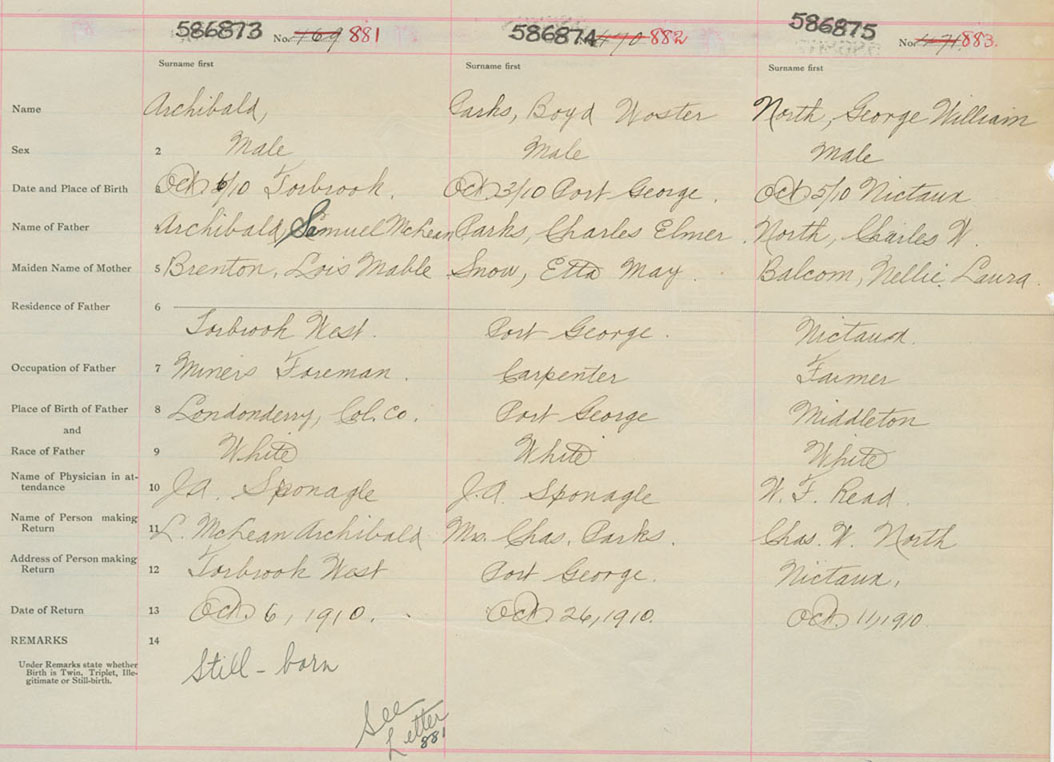 586873 No. 169 881 586874 170 882 586875 No. 171 883.
Surname first Surname first Surname first
Name Archibald, Parks, Boyd Woster North, George William
Sex 2 Male Male Male
Date and Place of Birth Oct 6/10 Torbrook. Oct. 3/10 Port George. Oct 5/10 Nictaux
Name of Father Archibald, Samuel McLean Parks, Charles Elmer North, Charles W.
Maiden Name of Mother 5 Brenton, Lois Mable Snow, Etta May Balcom, Nellie Laura
Residence of Father 6
Torbrook West. Port George. Nictaux.
Occupation of Father 7 Miners Foreman. Carpenter Farmer
Place of Birth of Father 8 Londonderry, Col. Co. Port George Middleton
and
Race of Father 9 White White White
Name of Physician in at-
tendance 10 J.A. Sponagle J.A. Sponagle W. F. Read
Name of Person making
Return 11 McLean Archibald Mrs. Chas. Parks. Chas. W. North
Address of Person making
Return 12 Torbrook West Port George. Nictaux.
Date of Return 13 Oct 6, 1910. Oct 26, 1910. Oct. 11, 1910
REMARKS 14
Under Remarks state whether
Birth is Twin, Triplet, Ille-
gitimate or Still-birth.
Still-born
See
Letter
881